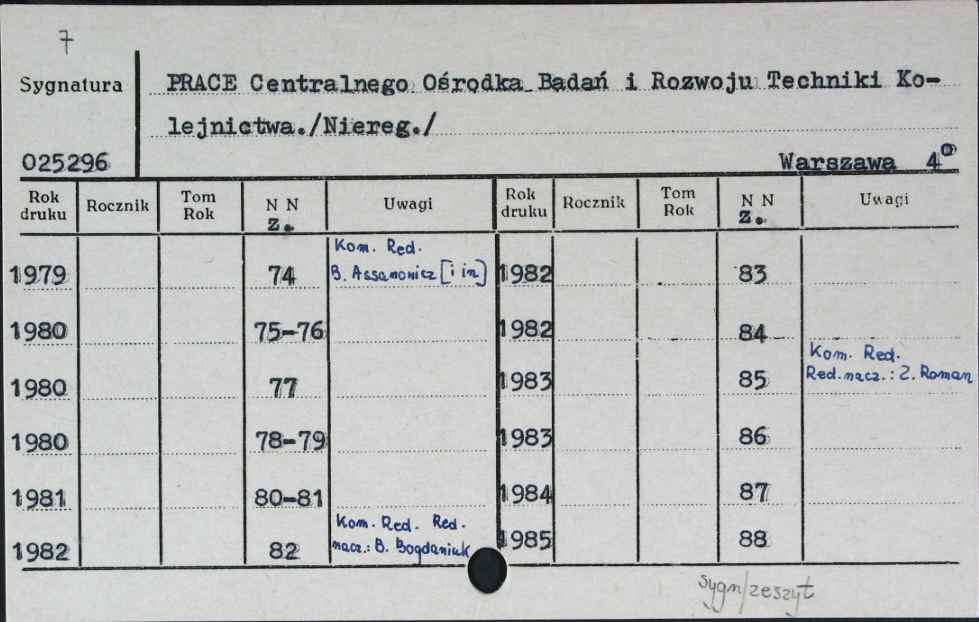 7
Sygnatura PRACE Centralnego Ośrodka Badań i Rozwoju Techniki Ko-
lejnictwa./Niereg./
025296 Warszawa 4°
Rok druku Rocznik Tom Rok N N Z. Uwagi Rok druku Rocznik Tom Rok N N Z. Uwagi
Kom. Red.
1979 74 B. Assanowicz [i in] 1982 83
1980 75-76 1982 84
Kom. Red.
1980 77 1983 85 Red. nacz.: Z. Roman
1980 78-79 1983 86
1981 80-81 1984 87
Kom. Red. Red.
1982 82 nacz.: B. Bogdaniuk 1985 88
sygn/zeszyt